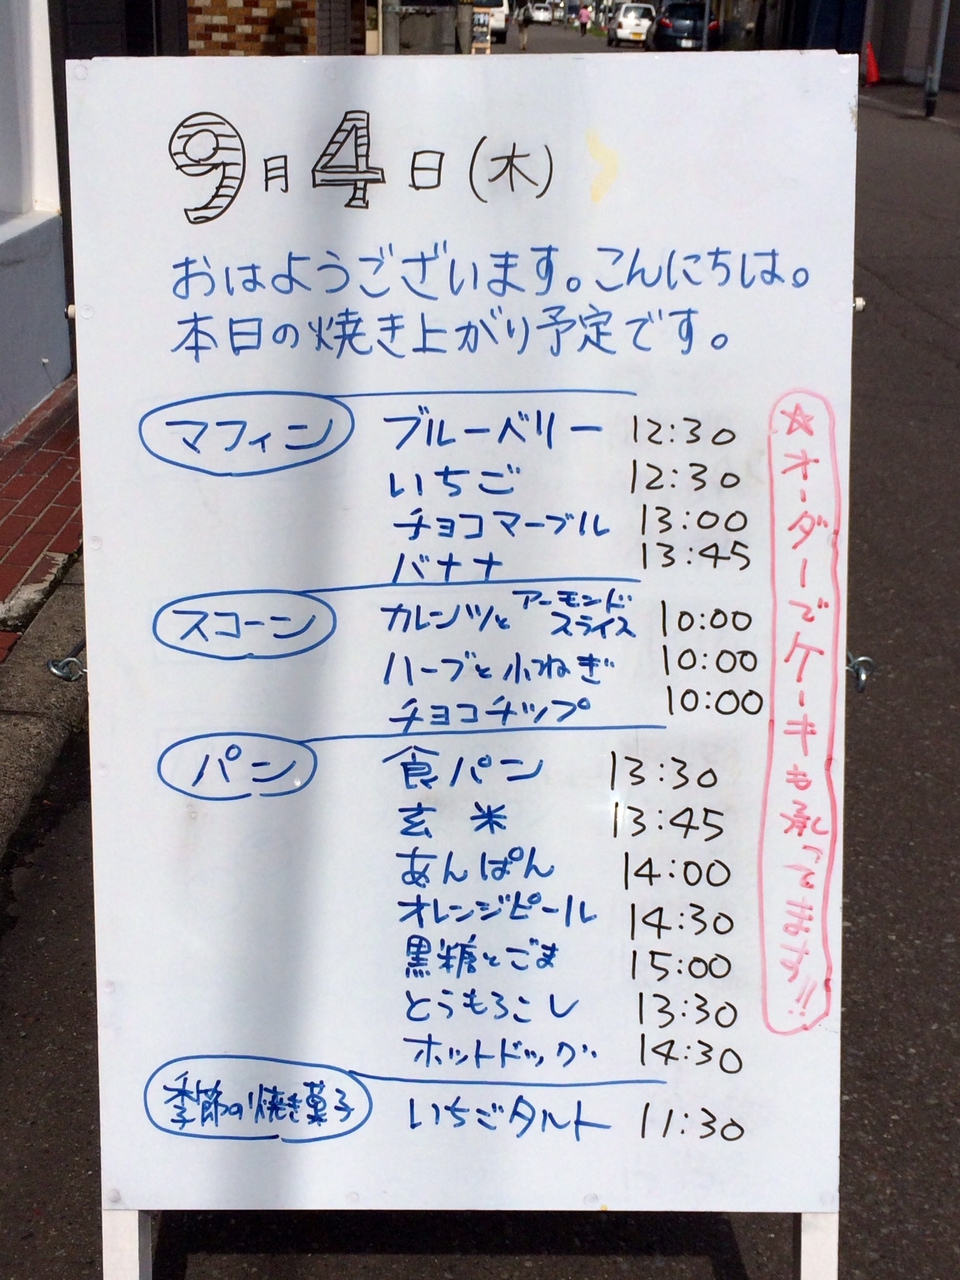 9月4日(木)
おはようございます。こんにちは。
本日の焼き上がり予定です。
マフィン ブルーベリー 12:30
いちご 12:30
チョコマーブル 13:00
バナナ 13:45
スコーン カレンツとアーモンドスライス 10:00
ハーブと小ねぎ 10:00
チョコチップ 10:00
パン 食パン 13:30
玄米 13:45
あんぱん 14:00
オレンジピール 14:30
黒糖とごま 15:00
とうもろこし 13:30
ホットドッグ 14:30
季節の焼き菓子 いちごタルト 11:30
☆オーダーでケーキも承ってます!!